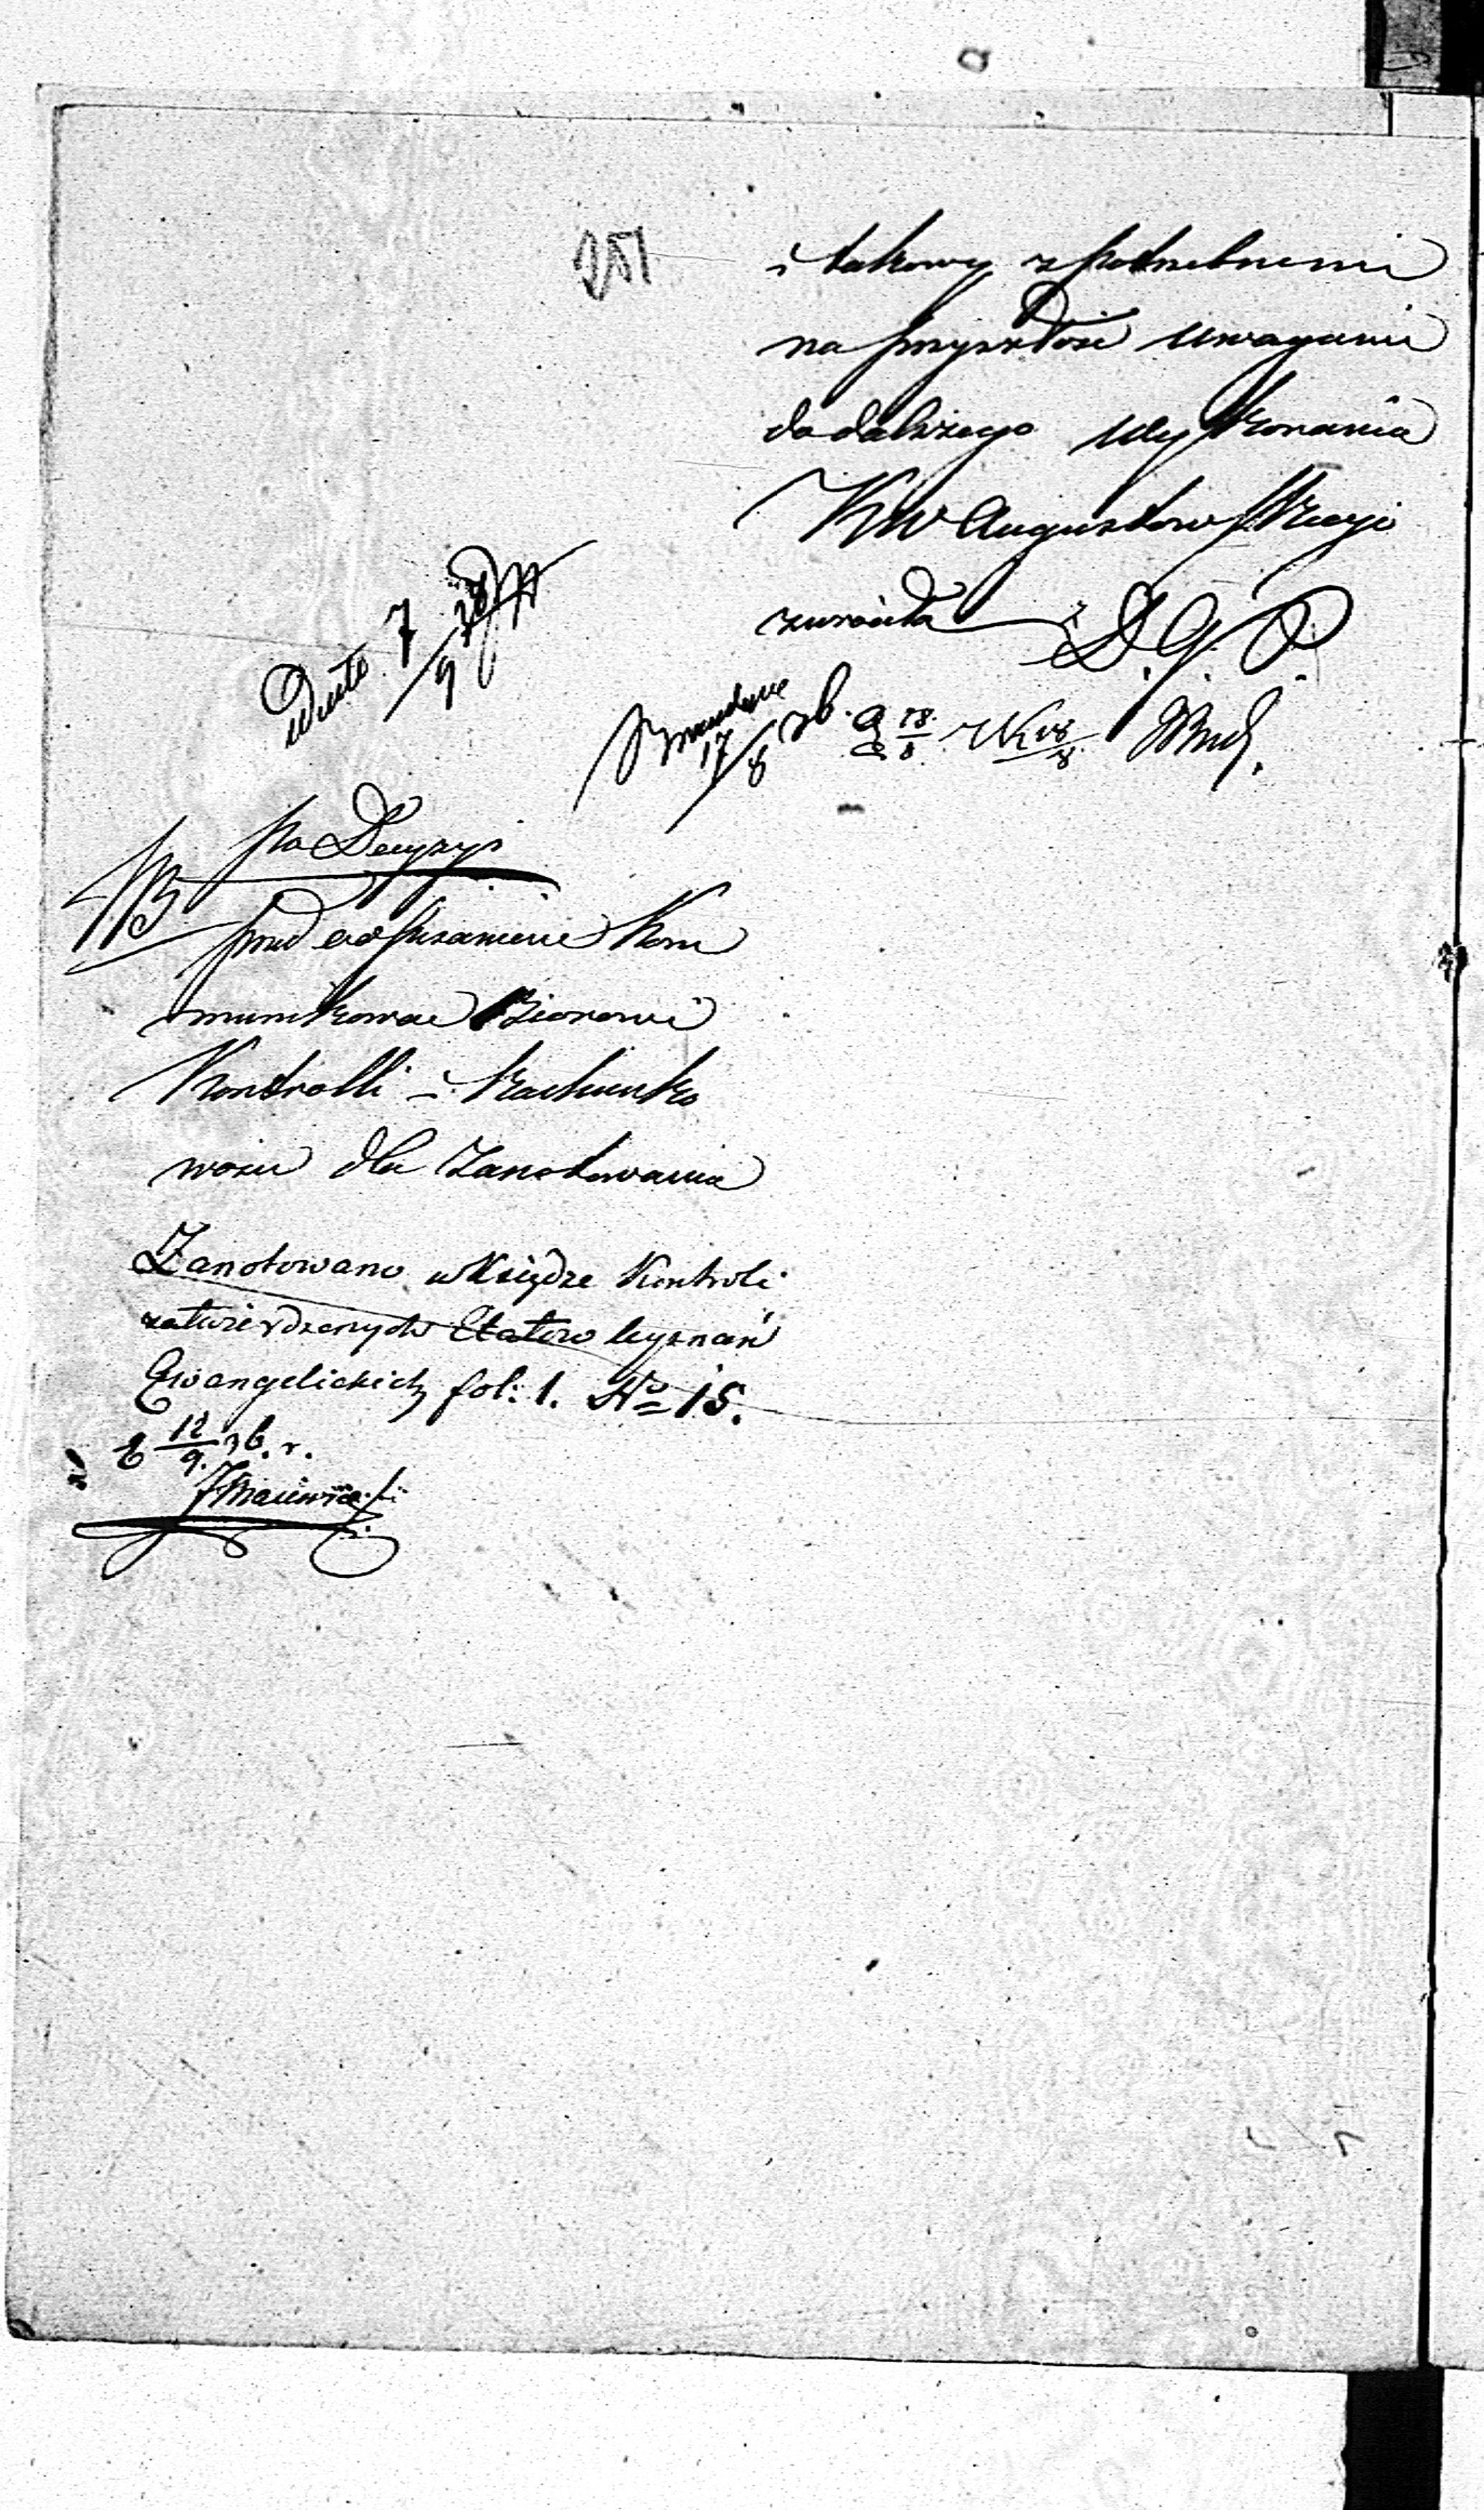 251
i takowy z potrzebnemi
na przyszłość uwagami
do dalszego wykonania
KW Augustowskiey
zwróciła D. G. P.
17/8 36. 18/8 18/8
7/9
po Decyzyi
NB
przed odpisaniem Kom
munikować Biorowi
Kontrolli i Rachunko
wości dla Zanotowania
Zanotowano w Księdze Kontroli
zatwierdzonych Etatów Wyznań
Ewangelickich fol: 1. No 15.
d 12/9. 36. r.